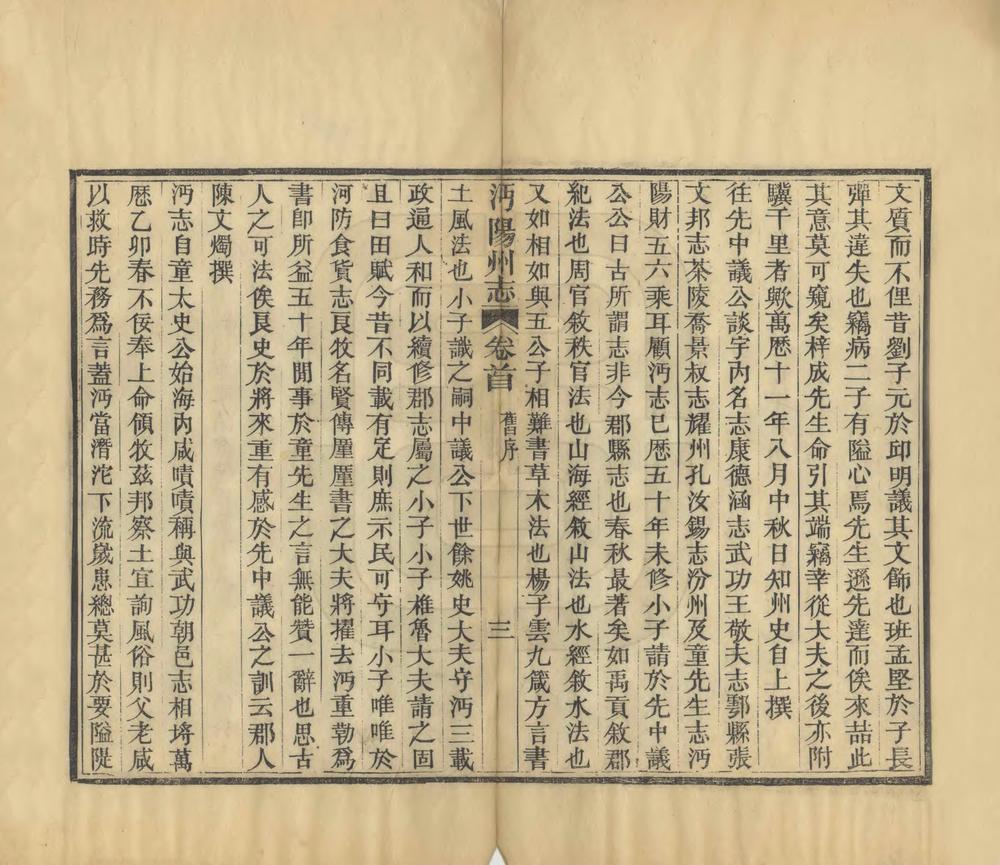 文質而不俚昔劉子元於邱明議其文飾也班孟堅於子長
彈其違失也竊病二子有隘心馬先生遜先達而俟來喆此
其意莫可窺矣梓成先生命引其端竊幸從大夫之後亦附
驥千里者歟萬厯十一年八月中秋日知州史自上撰
往先中議公談宇內名志康德涵志武功王敬夫志鄠縣張
文邦志茶陵喬景叔志耀州孔汝錫志汾州及童先生志沔
陽財五六乘耳顧沔志已厯五十年未修小子請於先中議
公公曰古所謂志非今郡縣志也春秋最著矣如禹貢敘郡
紀法也周官敘秩官法也山海經敘山法也水經敘水法也
又如相如與五公子相難書草木法也楊子雲九箴方言書
沔陽州志 卷首 舊序 三
土風法也小子識之嗣中議公下世餘姚史大夫守沔三載
政通人和而以續修郡志屬之小子小子椎魯大夫請之固
且曰田賦今昔不同載有定則庶示民可守耳小子唯唯於
河防食貨志良牧名賢傳厪厪書之大夫將擢去沔重勒為
書即所益五十年閒事於童先生之言無能贊一辭也思古
人之可法俟良史於將來重有感於先中議公之訓云郡人
陳文燭撰
沔志自童太史公始海內咸嘖嘖稱與武功朝邑志相埒萬
厯乙卯春不佞奉上命領牧茲邦察土宜詢風俗則父老咸
以救時先務為言蓋沔當潛沱下流歲患總莫甚於要隘隄